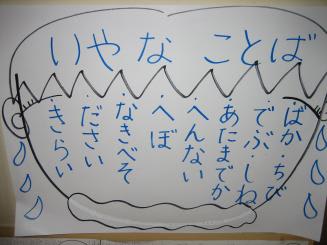 いやな ことば
・ばか・ちび
・でぶ・しね
・あたまでか
・へんない
・へぼ
・なきべそ
・ださい
・きらい